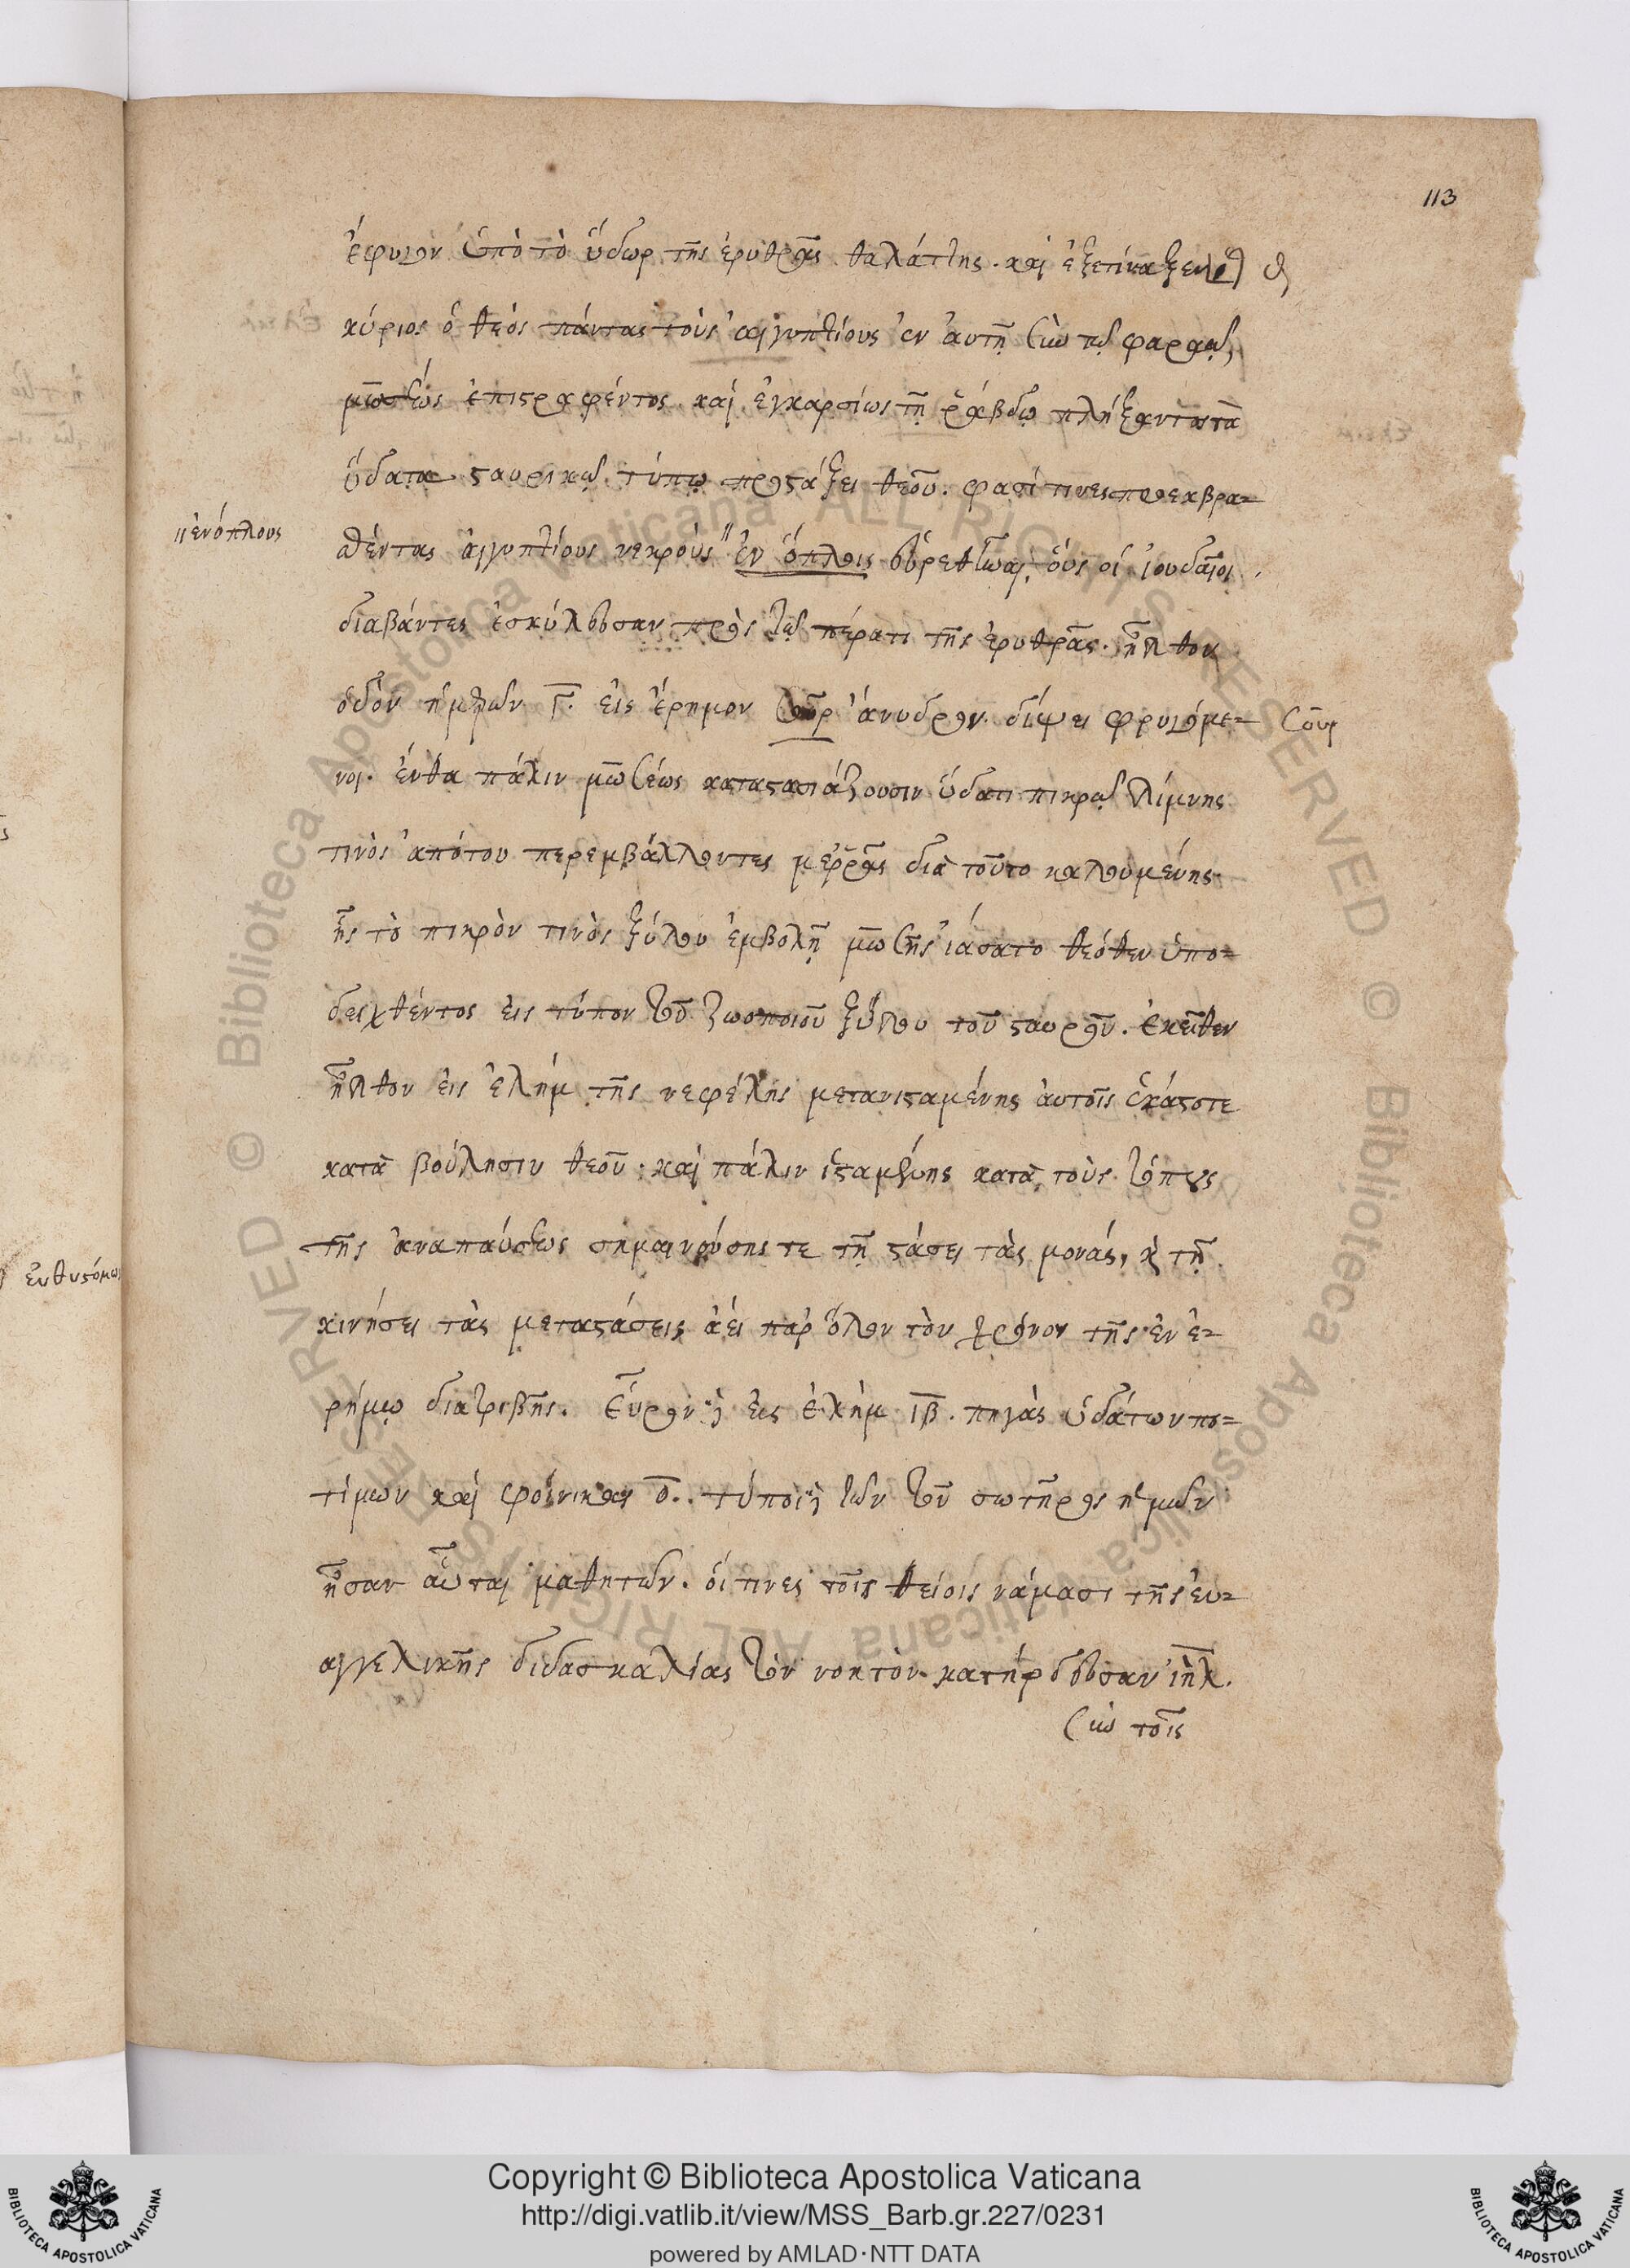 113
ἔφυγον ὑπὸ τὸ ὕδωρ τῆς ἐρυθρᾶς θαλάττης. καὶ ἐξετίναξεν
κύριος ὁ θεὸς πάντας τοὺς αἰγυπτίους ἐν αὐτῇ σὺν τῷ φαραῷ,
μωσέως ἐπιστραφέντος καὶ ἐγκαρσίως τῇ ῥάβδῳ πλήξαντος τὰ
ὕδατα σταυρικῷ τύπῳ προστάξει θεοῦ. φασί τινες τοὺς ἐκβρα=
σθέντας αἰγυπτίους νεκροὺς " ἐν ὅπλοις εὑρεθῆναι, οὓς οἱ ἰουδαῖοι
" ἐνόπλους
διαβάντες ἐσκύλευσαν πρὸς τῷ πέρατι τῆς ἐρυθρᾶς. ἦλθον
ὁδὸν ἡμερῶν γ. εἰς ἔρημον σοὺρ ἄνυδρον δίψει φρυγόμε=
σοὺρ
νοι. ἔνθα πάλιν μωσέως καταστασιάζουσιν ὕδατι πικρῷ λίμνης
τινὸς ἀπότου περεμβάλλοντες μερρᾶς διὰ τοῦτο καλουμένης
ἧς τὸ πικρὸν τινὸς ξύλου ἐμβολῇ μωσῆς ἰάσατο θεόθεν ὑπο=
δειχθέντος εἰς τύπον τοῦ ζωοποιοῦ ξύλου τοῦ σταυροῦ. ἐκεῖθεν
ἦλθον εἰς ἐλὴμ τῆς νεφέλης μετανισταμένης αὐτοῖς ἑκάστοτε
κατὰ βούλησιν θεοῦ. καὶ πάλιν ἱσταμένης κατὰ τοὺς τόπους
τῆς ἀναπαύσεως σημαινούσης τε τῇ στάσει τὰς μονάς, καὶ τῇ
εὐθυστόμως
κινήσει τὰς μεταστάσεις ἀεὶ παρ' ὅλον τὸν χρόνον τῆς ἐν ἐ=
ρήμῳ διατριβῆς. εὗρον δὲ εἰς ἐλὴμ ιβ. πηγὰς ὑδάτων πο=
τίμων καὶ φοίνικας ο. τύποι δὲ τῶν τοῦ σωτῆρος ἡμῶν
ἦσαν αὗται μαθητῶν. οἵτινες τοῖς θείοις νάμασι τῆς εὐ=
αγγελικῆς διδασκαλίας τὸν νοητὸν κατήρδευσαν ἰηλ.
σὺν τοῖς
Copyright © Biblioteca Apostolica Vaticana
http://digi.vatlib.it/view/MSS_Barb.gr.227/0231
powered by AMLAD·NTT DATA
BIBLIOTECA APOSTOLICA VATICANA
BIBLIOTECA APOSTOLICA VATICANA
© Biblioteca Apostolica Vaticana ALL RIGHTS RESERVED © Biblioteca Apostolica Vaticana ALL RIGHTS RESERVED